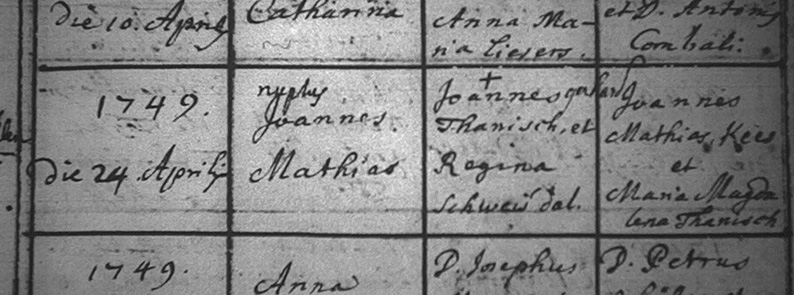 die 10. Aprilis
Catharina
Anna Ma-
ria Liesers.
et D. Antonij
Combali.
1749.
die 24 Aprilis
Joannes.
Mathias
Joannes gerhard
Thanisch, et
Regina
Schweis dal.
Joannes
Mathias Kees
et
Maria Magda
lena Thanisch
1749.
Anna
D. Josephus
D. Petrus